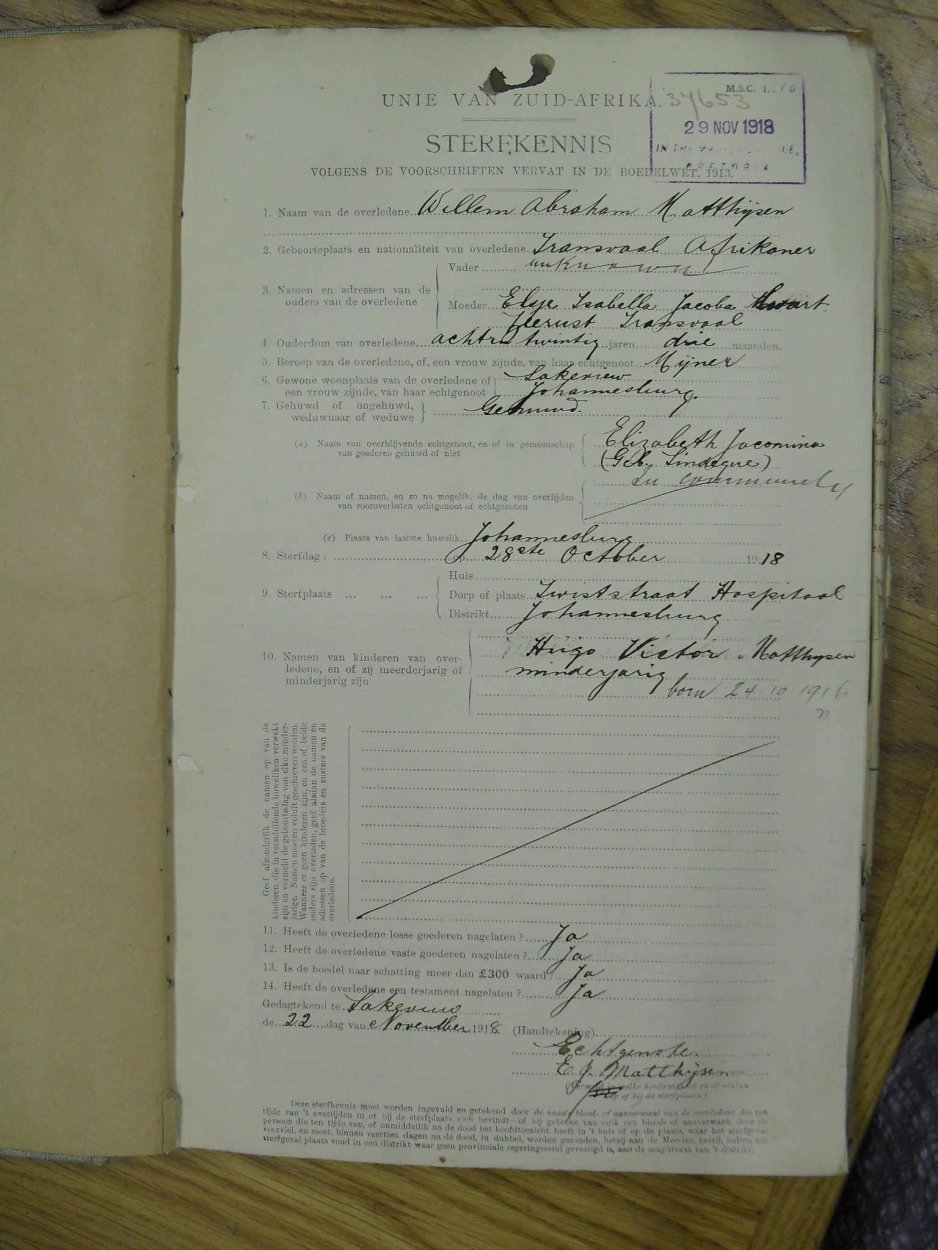 UNIE VAN ZUID-AFRIKA.
34653
M.S.C.
29 NOV 1918
STERFKENNIS
PRETORIA
VOLGENS DE VOORSCHRIFTEN VERVAT IN DE BOEDELWET, 1913.
1. Naam van de overledene Willem Abraham Matthysen
2. Geboorteplaats en nationaliteit van overledene Transvaal Afrikaner
3. Namen en adressen van de ouders van de overledene
Vader unknown
Moeder Elsje Isabella Jacoba
Zeerust Transvaal
4. Ouderdom van overledene achtentwintig jaren drie maanden.
5. Beroep van de overledene, of, een vrouw zijnde, van haar echtgenoot Mijner
6. Gewone woonplaats van de overledene of Lakeview
een vrouw zijnde, van haar echtgenoot Johannesburg
7. Gehuwd of ongehuwd, weduwnaar of weduwe Gehuwd.
(a) Naam van overblijvende echtgenoot, en of in gemeenschap Elizabeth Jacomina
van goederen gehuwd of niet (Geb. Lindeque)
In community
(b) Naam of namen, en zo na mogelijk, de dag van overlijden
van vooroverleden echtgenoot of echtgenoten
(c) Plaats van laatste huwelik Johannesburg
8. Sterfdag : 28ste October 1918
9. Sterfplaats ... ... ...
Huis
Dorp of plaats Twiststraat Hospitaal
Distrikt Johannesburg
10. Namen van kinderen van over- Hugo Victor Matthysen
ledene, en of zij meerderjarig of minderjarig
minderjarig zijn
born 24-10-1916
Geef afzonderlik de namen op van de
kinderen die in verschillende huweliken verwekt
zijn en vermeld de geboortedag van elke minder-
jarige. Namen moeten voluit geschreven worden.
Wanneer er geen kinderen zijn, en een of beide
ouders zijn overleden, geef alsdan de namen en
adressen op van de broeders en zusters van de
overledene.
11. Heeft de overledene losse goederen nagelaten ? Ja
12. Heeft de overledene vaste goederen nagelaten ? Ja
13. Is de boedel naar schatting meer dan £300 waard? Ja
14. Heeft de overledene een testament nagelaten ? Ja
Gedagtekend te Lakeview
de 22 dag van November 1918. (Handtekening)
Echtgenote
E. J. Matthysen
op of bij de sterfplaats.)
Deze sterfkennis moet worden ingevuld en getekend door de naaste bloed- of aanverwant van de overledene die ten
tijde van 't overlijden in of bij de sterfplaats zich bevindt—of bij gebreke van zulk een bloed- of aanverwant, door de
persoon die ten tijde van, of onmiddellik na de dood het hoofdtoezicht heeft in 't huis of op de plaats, waar het sterfgeval
voorviel, en moet, binnen veertien dagen na de dood, in dubbel, worden gezonden, hetzij aan de Meester, hetzij, indien het
sterfgeval plaats vond in een distrikt waar geen provinciale regeringszetel gevestigd is, aan de magistraat van 't distrikt.